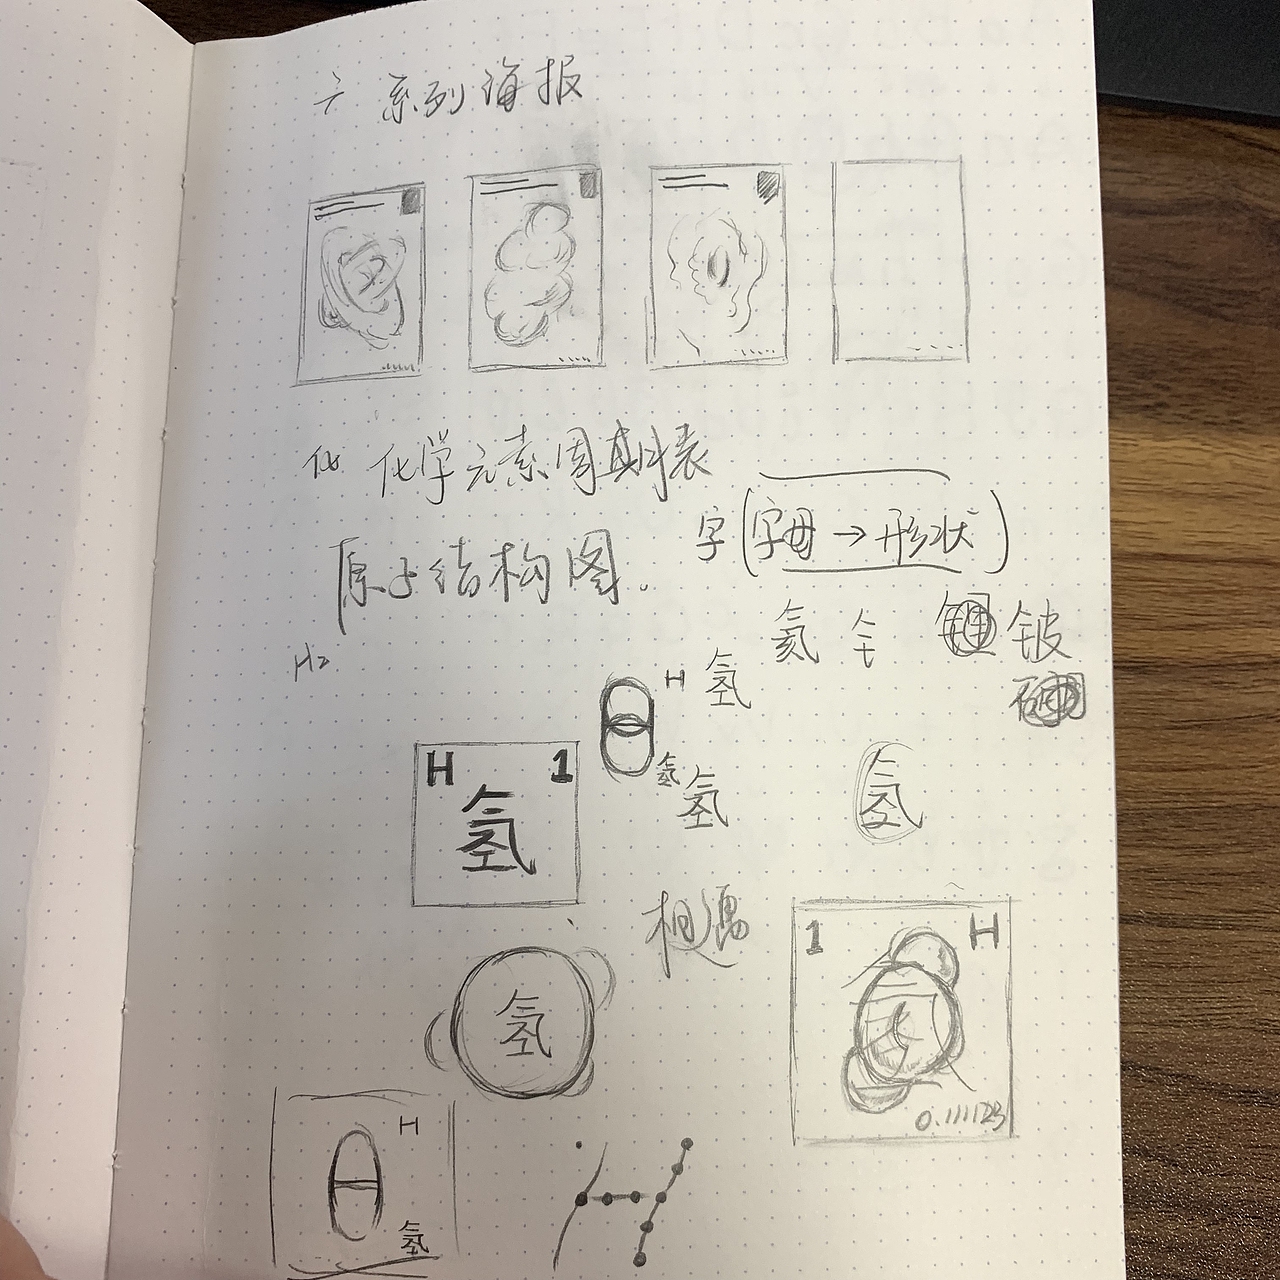 系列海报
化 化学元素周期表
字(字母→形状)
原子结构图.
氦 钅 锂 铍
H2
H 氢
硼
H 1
氢
氢 氢
氢
相遇
1 H
氢
0.111123
H
氢